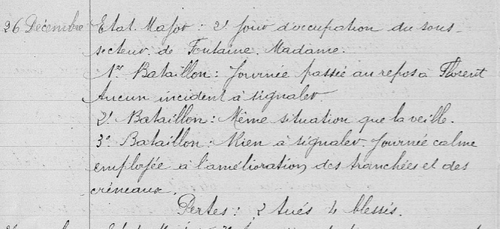 26 Décembre Etat Major : 2e jour d'occupation du sous-
secteur de Fontaine Madame.
1er Bataillon : Journée passée au repos à Florent
Aucun incident à signaler
2e Bataillon : Même situation que la veille.
3e Bataillon : Rien à signaler. Journée calme
employée à l'amélioration des tranchées et des
créneaux.
Pertes : 2 tués 4 blessés.